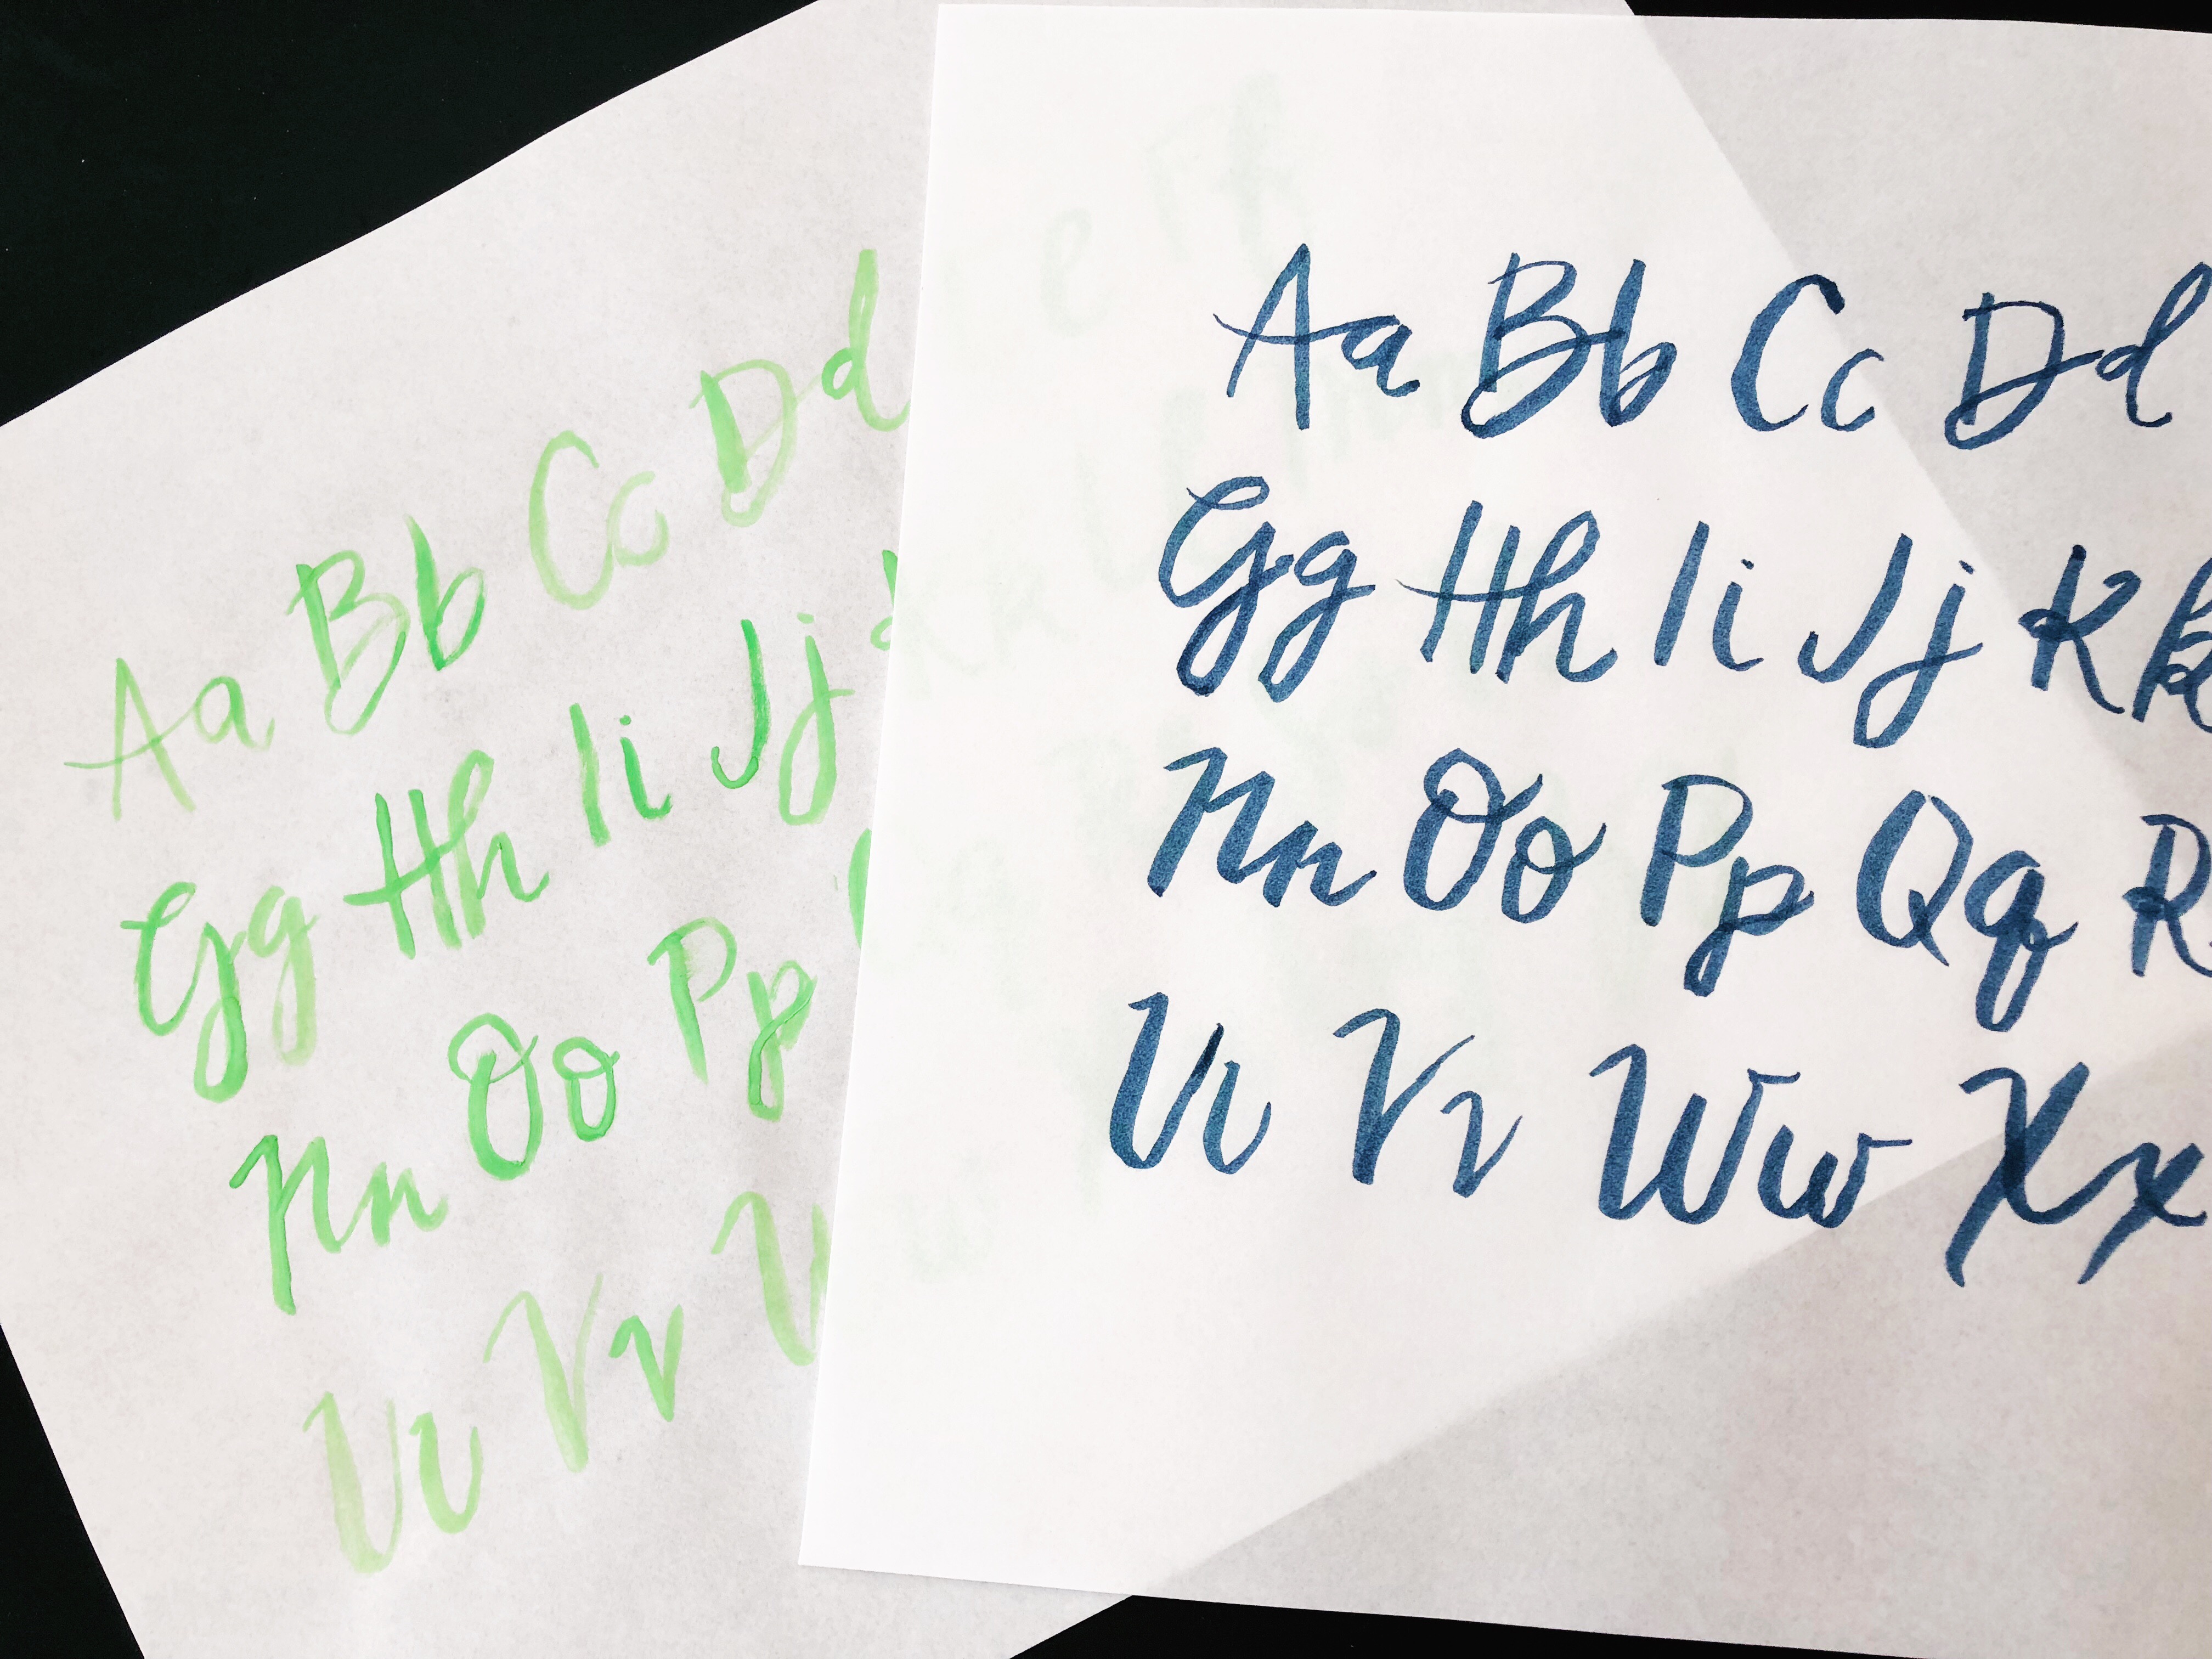 Aa Bb Cc Dd
Gg Hh Ii Jj
Nn Oo Pp
Uu Vv
Aa Bb Cc Dd
Gg Hh Ii Jj Kk
Nn Oo Pp Qq R
Uu Vv Ww Xx